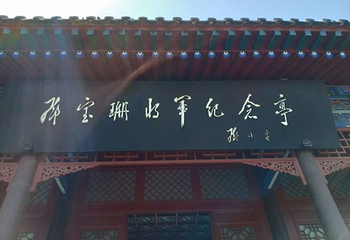 邓宝珊将军纪念亭